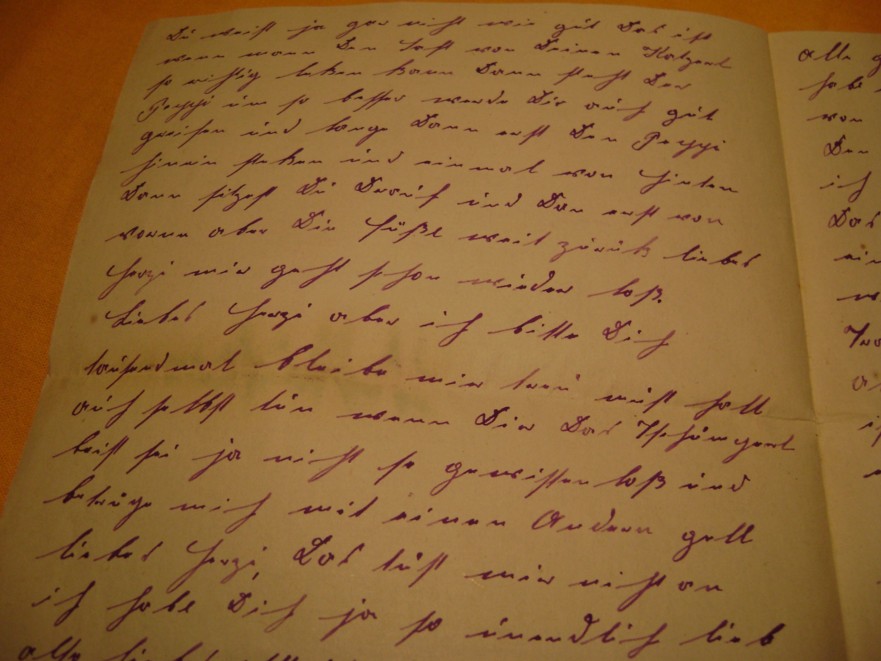 Du weißt ja gar nicht wie gut Das ist
wenn man Den Saft von Deinen
so richtig leken kann Dann steht Der
um so besser werde Dir auch gut
greifen und lange Dann erst Den
hinein steken und einmal von hinten
Dann sitzest Du Drauf und Dan erst von
vorne aber Die Füße weit zurük liebes
Herzi mir geht schon wieder loß.
Liebes Herzi aber ich bitte Dich
tausendmal bleibe mir treu must halt
auch selbst tun wenn Dir Das
beist sei ja nicht so gewissenloß und
betrüge mich mit einen Andern gell
liebes Herzi, Das tust mir nicht an
ich habe Dich ja so unendlich lieb
alle
habe
von
Den
ich
Das